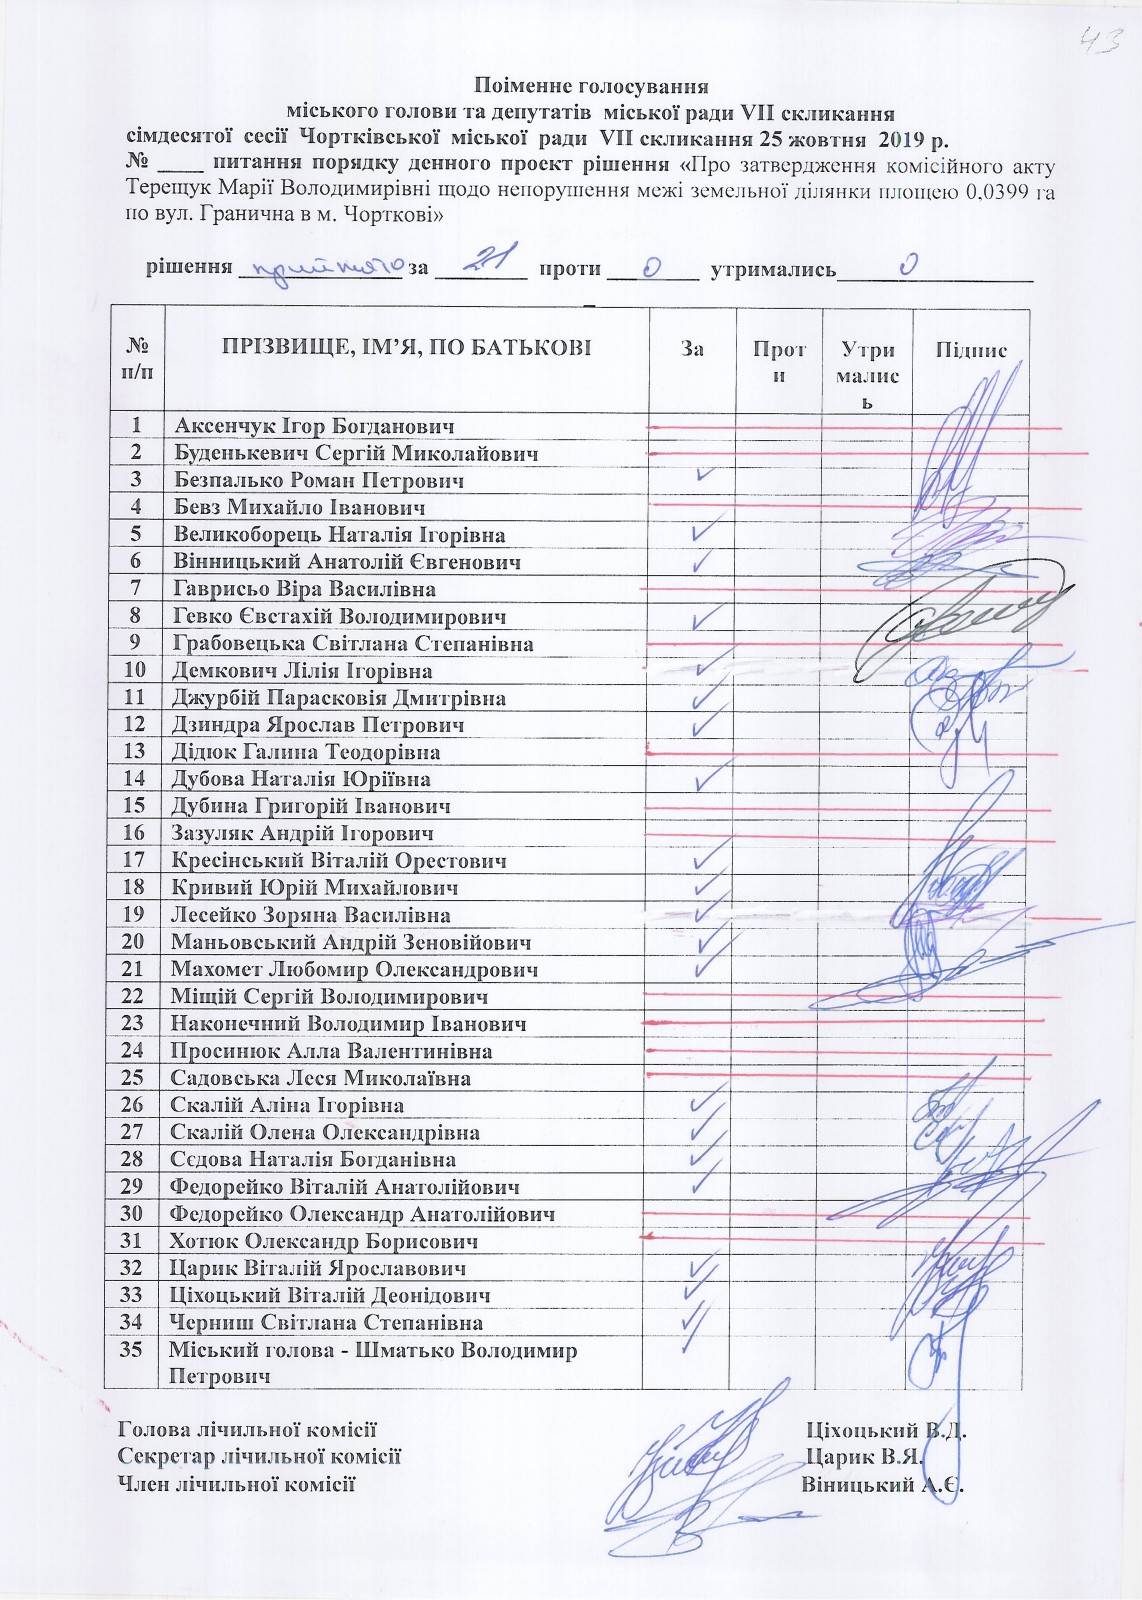 43
Поіменне голосування
міського голови та депутатів міської ради VII скликання
сімдесятої сесії Чортківської міської ради VII скликання 25 жовтня 2019 р.
№ ____ питання порядку денного проект рішення «Про затвердження комісійного акту
Терещук Марії Володимирівні щодо непорушення межі земельної ділянки площею 0,0399 га
по вул. Гранична в м. Чорткові»
рішення прийнято за 21 проти 0 утримались 0
№ п/п ПРІЗВИЩЕ, ІМ’Я, ПО БАТ�ькові За Проти Утрималис ь Підпис
1 Аксенчук Ігор Богданович
2 Буденькевич Сергій Миколайович
3 Безпалько Роман Петрович ✓
4 Бевз Михайло Іванович
5 Великоборець Наталія Ігорівна ✓
6 Вінницький Анатолій Євгенович ✓
7 Гаврисьо Віра Василівна
8 Гевко Євстахій Володимирович ✓
9 Грабовецька Світлана Степанівна
10 Демкович Лілія Ігорівна ✓
11 Джурбій Парасковія Дмитрівна ✓
12 Дзиндра Ярослав Петрович ✓
13 Дідюк Галина Теодорівна
14 Дубова Наталія Юріївна ✓
15 Дубина Григорій Іванович
16 Зазуляк Андрій Ігорович
17 Кресінський Віталій Орестович ✓
18 Кривий Юрій Михайлович ✓
19 Лесейко Зоряна Василівна ✓
20 Маньовський Андрій Зеновійович ✓
21 Махомет Любомир Олександрович ✓
22 Міщій Сергій Володимирович
23 Наконечний Володимир Іванович
24 Просинюк Алла Валентинівна
25 Садовська Леся Миколаївна
26 Скалій Аліна Ігорівна ✓
27 Скалій Олена Олександрівна ✓
28 Сєдова Наталія Богданівна ✓
29 Федорейко Віталій Анатолійович ✓
30 Федорейко Олександр Анатолійович
31 Хотюк Олександр Борисович
32 Царик Віталій Ярославович ✓
33 Ціхоцький Віталій Деонідович ✓
34 Черниш Світлана Степанівна ✓
35 Міський голова - Шматько Володимир ✓
Петрович
Голова лічильної комісії Ціхоцький В.Д.
Секретар лічильної комісії Царик В.Я.
Член лічильної комісії Віницький А.Є.